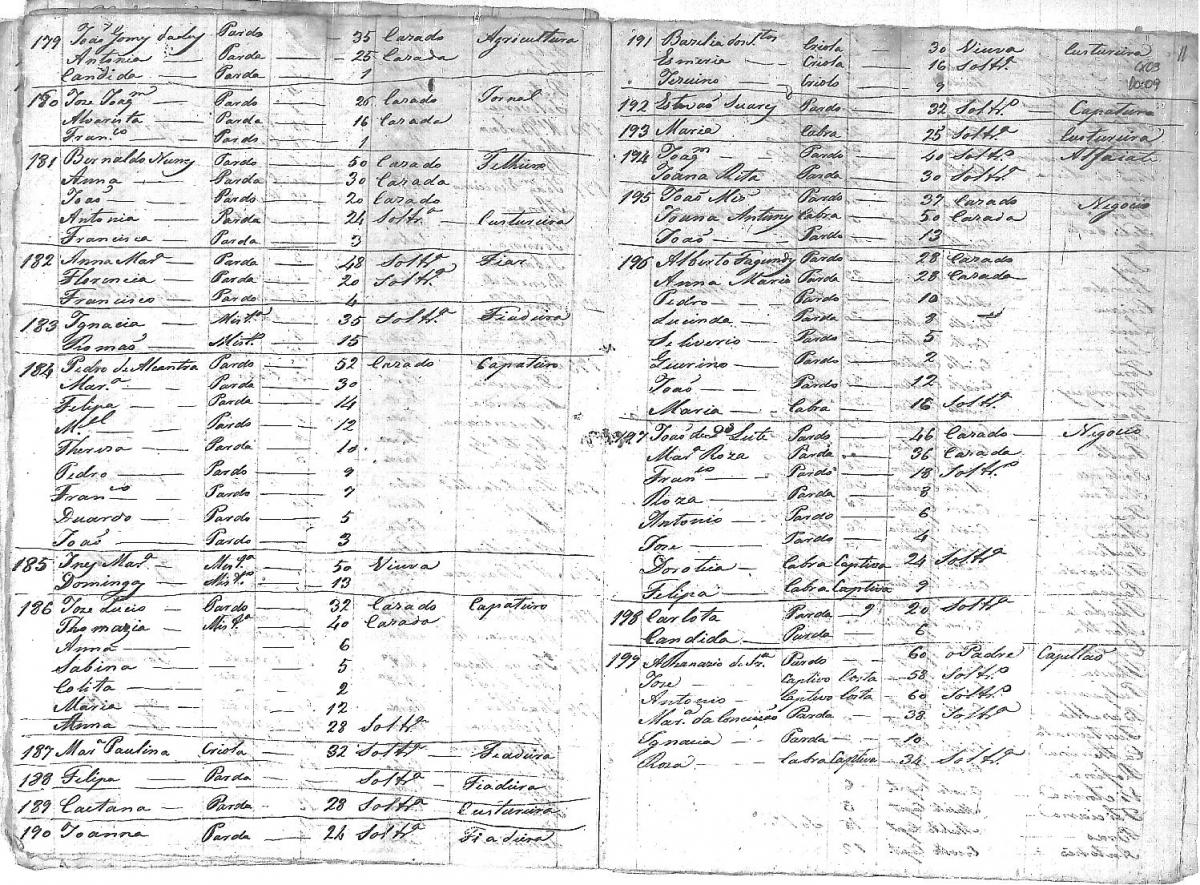 179 João Gomes da Luz Pardo 35 Cazado Agricultura
Antonia Parda 25 Cazada
Candida Parda 1
180 Joze Joaqm Pardo 26 Cazado Jornal
Parda 16 Cazada
Franco Pardo 1
181 Bernaldo Nunes Pardo 50 Cazado
Anna Parda 30 Cazada
João Pardo 20 Cazado
Antonia Parda 24 Soltra Custureira
Francisca Parda 3
182 Anna Mara Parda 48 Soltra Fiar
Florencia Parda 20 Soltra
Francisco Pardo 4
183 Ignacia Mista 35 Soltra Fiadeira
Thomas Misto 15
184 Pedro de Alcantra Pardo 52 Cazado Çapateiro
Mara Parda 30
Felipa Parda 14
Mel Pardo 12
Thereza Parda 10
Pedro Pardo 9
Franco Pardo 7
Duardo Pardo 5
João Pardo 3
185 Ines Mara Mista 50 Viuva
Domingos 13
186 Joze Lucio Pardo 32 Cazado Çapateiro
Thomazia Mista 40 Cazada
Anna 6
Sabina 5
2
Maria 12
Anna 28 Soltra
187 Mara Paulina Criola 32 Soltra Fiadeira
188 Felipa Parda Soltra Fiadeira
189 Caetana Parda 28 Soltra Custureira
190 Joanna Parda 24 Soltra Fiadeira
191 Bazilia dos Stos Criola 30 Viuva Custureira
Criola 16 Soltra
Criolo 9
192 Estevão Suares Pardo 32 Soltro
193 Maria Cabra 25 Soltra Custureira
194 Joaqm Pardo 40 Soltro Alfaiate
Joana Rita Parda 30 Soltra
195 João Pardo 37 Cazado Negocio
Joana Antunes Cabra 50 Cazada
João Pardo 13
196 Alberto Fagundes Pardo 28 Cazado
Anna Maria Parda 28 Cazada
Pedro Pardo 10
Lucinda Parda 8
Silverio Pardo 5
Pardo 2
João Pardo 12
Maria Cabra 16 Soltra
197 João Pardo 46 Cazado Negocio
Mara Roza Parda 36 Cazada
Franco Pardo 18 Soltro
Roza Parda 8
Antonio Pardo 6
Joze Pardo 4
Dorotia Cabra Captiva 24 Soltra
Felipa Cabra Captiva 9
198 Carlota Parda 20 Soltra
Candida Parda 6
199 Athanazio de Pardo 60 o Padre Capellão
Joze Captivo Costa 58 Soltro
Antonio Captivo Costa 60 Soltro
Mara da Conceição Parda 38 Soltra
Ignacia Parda 10
Roza Cabra Captiva 34 Soltra
11
CX03
Do:09